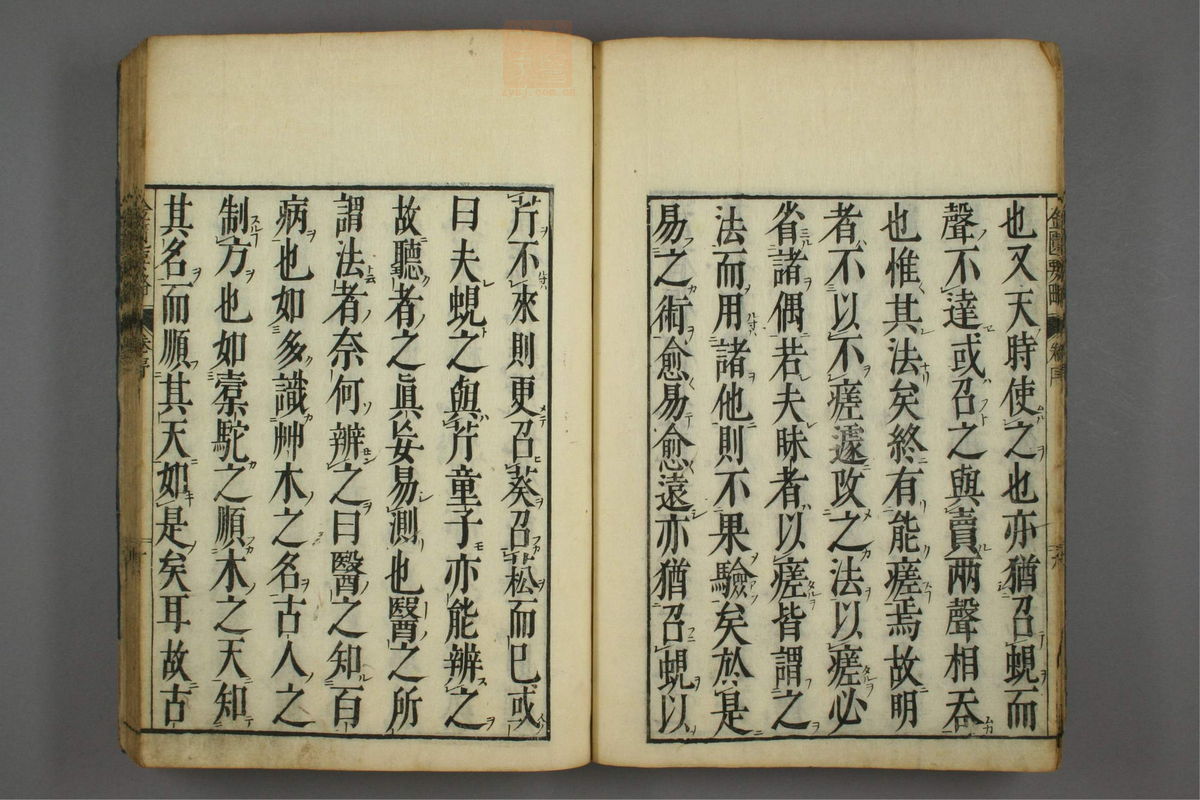 也又天時使之也亦猶召蜆而
聲不達或召之與賣兩聲相吞
也惟其法矣終有能瘥焉故明
者不以不瘥遽改之法以瘥必
省諸偶若夫昧者以瘥皆謂之
法而用諸他則不果驗矣於是
易之術愈易愈遠亦猶召蜆以
芹不來則更召葵召菘而已或
曰夫蜆之與芹童子亦能辨之
故聽者之眞妄易測也醫之所
謂法者奈何辨之曰醫之知百
病也如多識艸木之名古人之
制方也如橐駝之順木之天知
其名而順其天如是矣耳故古